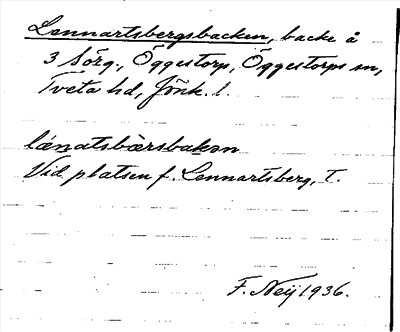 Lennartsbergsbacken, backe å
3 Sörg., Öggestorp, Öggestorps sn,
Tveta hd, Jönk. l.
länatsbärsbakən
Vid platsen f. Lennartsberg, T.
F. Neij 1936.